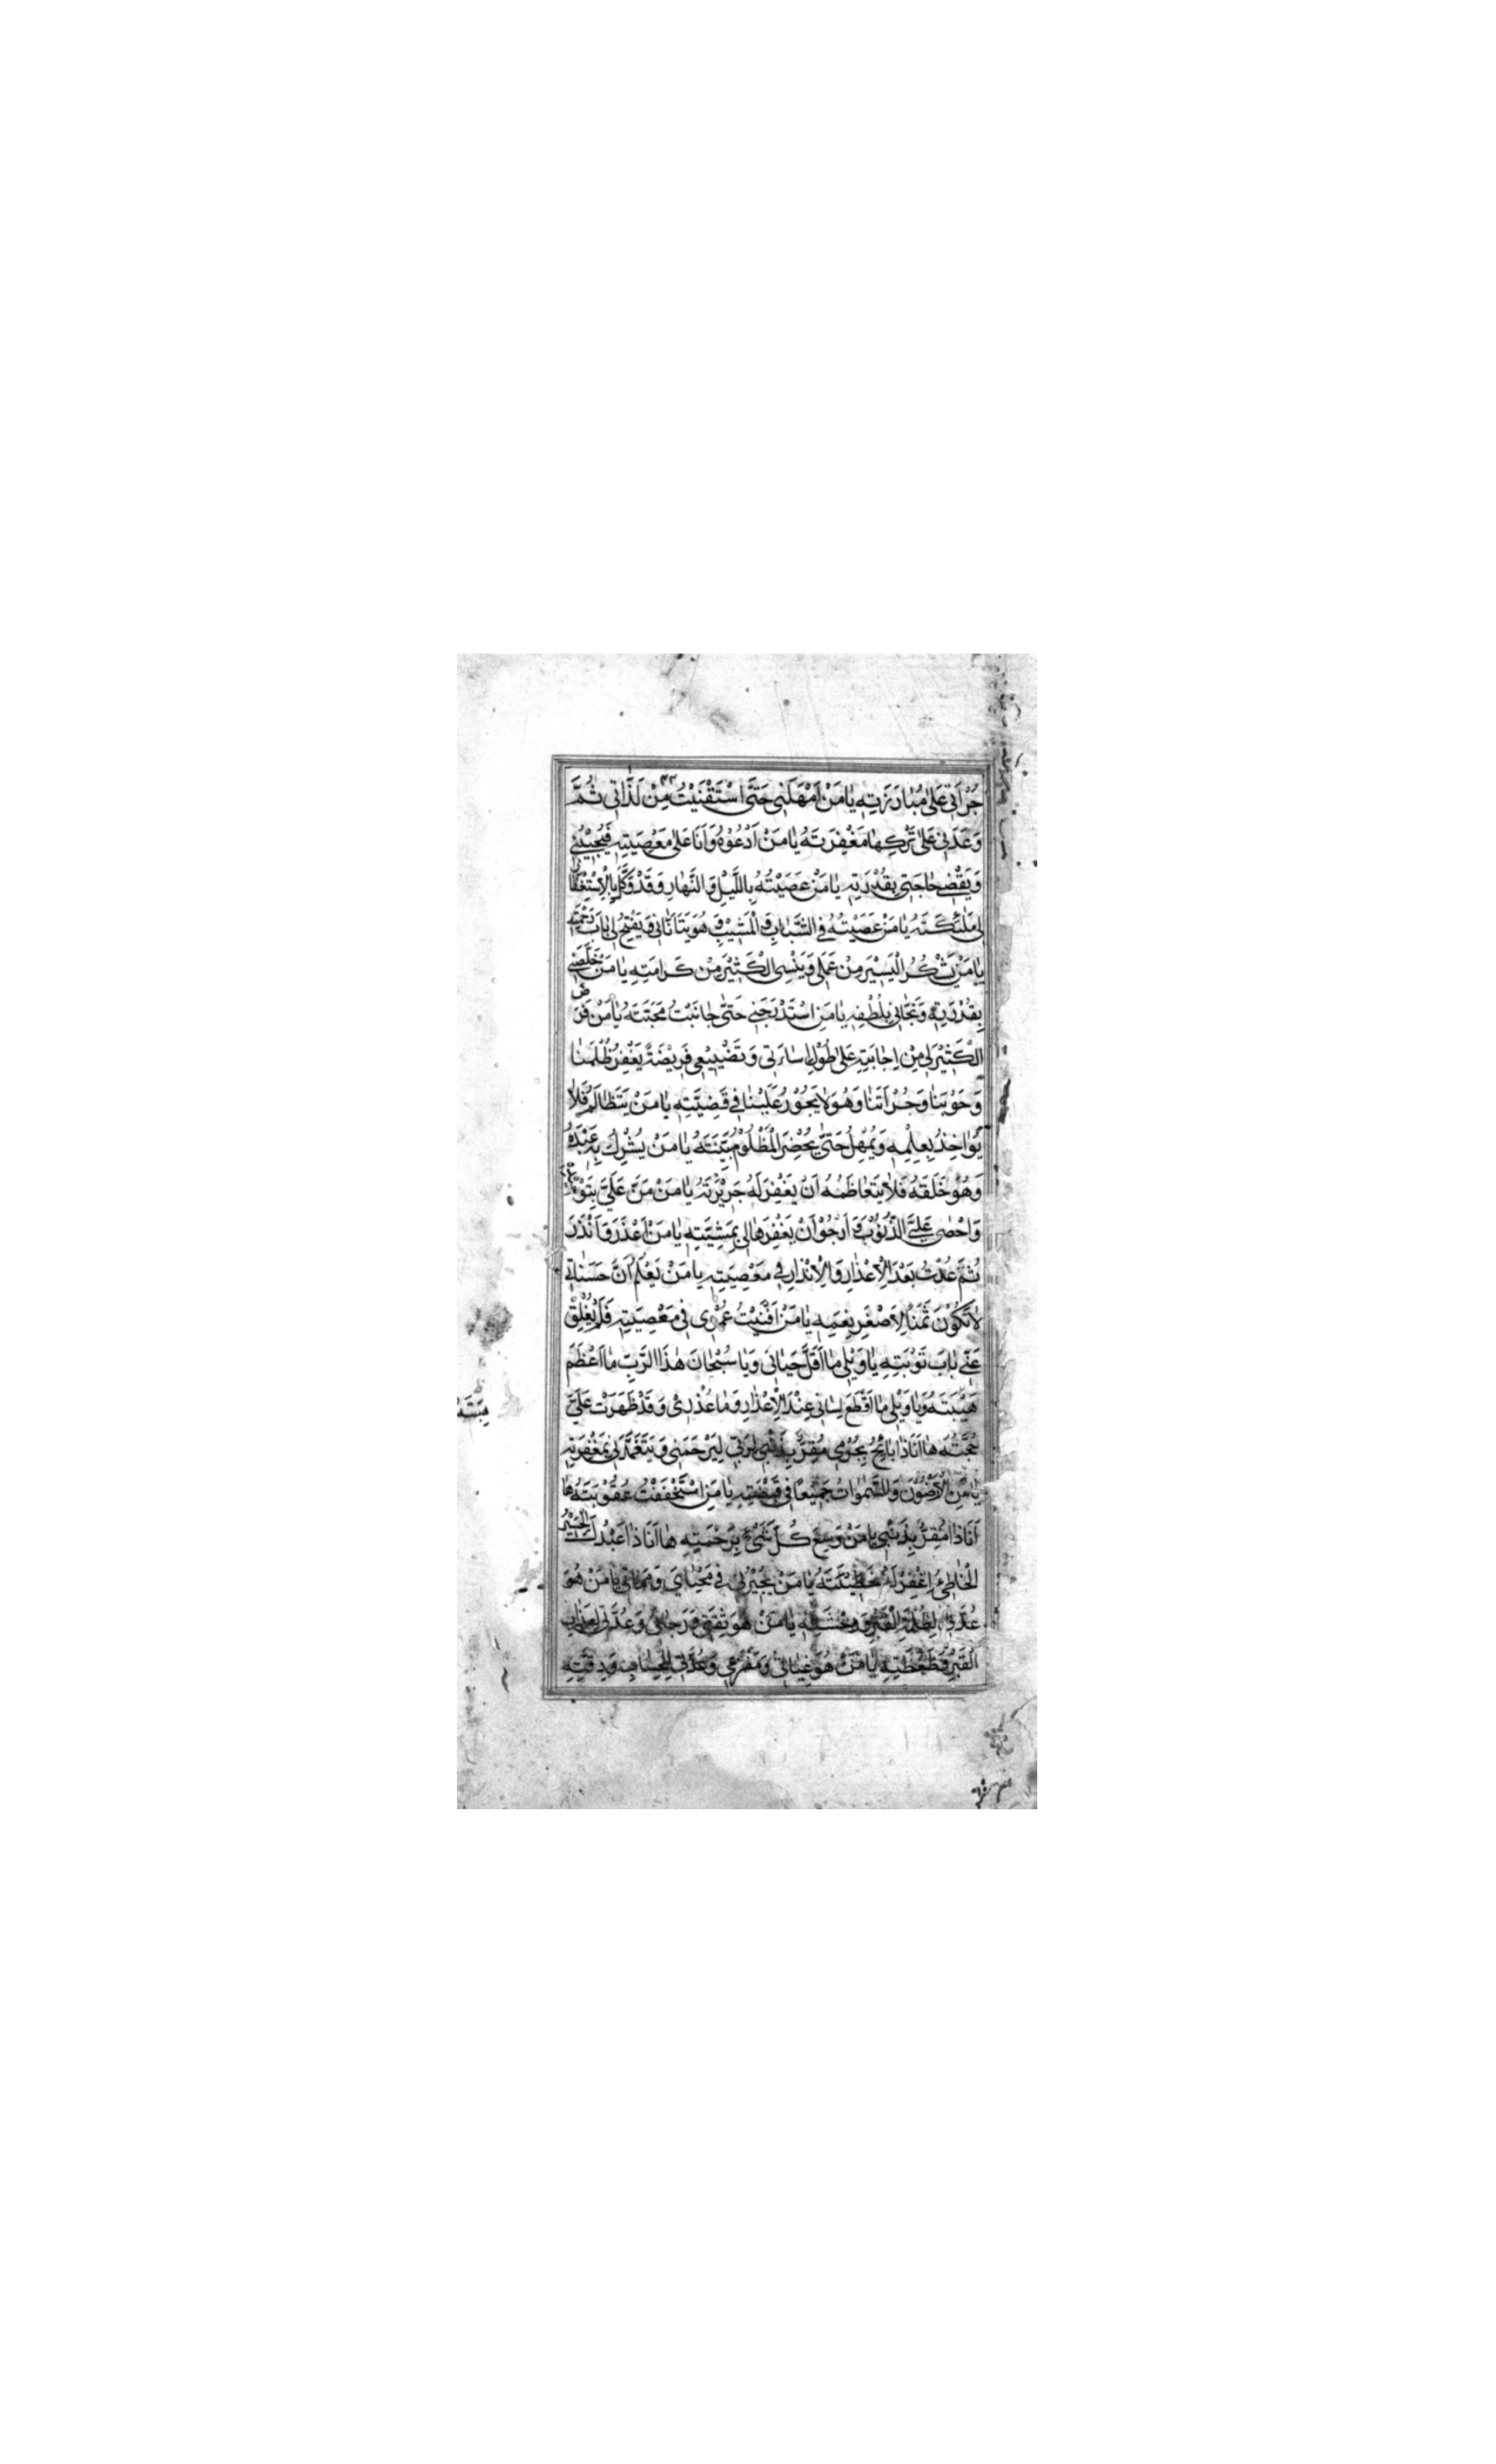 جُرْاَتِی عَلٰی مُبٰارَزَتِهِ یٰا مَنْ اَمْهَلَنِی حَتَّی اسْتَغْنَیْتُ مِنْ لَذّٰاتِی ثُمَّ
وَعَدَنِی عَلٰی تَرْکِهٰا مَغْفِرَتَهُ یٰا مَنْ اَدْعُوْهُ وَاَنَا عَلٰی مَعْصِیَتِهِ فَیُجِیْبُنِی
وَیَقْضِی حٰاجَتِی بِقُدْرَتِهِ یٰا مَنْ عَصَیْتُهُ بِاللَّیْلِ وَالنَّهٰارِ وَقَدْ وَکَّلَ بِالْاِسْتِغْفٰارِ
لِی مَلٰئِکَتَهُ یٰا مَنْ عَصَیْتُهُ فِی الشَّبٰابِ وَالْمَشِیْبِ وَهُوَ یَتَاَنّٰانِی وَیَفْتَحُ لِی بٰابَ رَحْمَتِهِ
یٰا مَنْ یَشْکُرُ الْیَسِیْرَ مِنْ عَمَلِی وَیَنْسِی الْکَثِیْرَ مِنْ کَرٰامَتِهِ یٰا مَنْ خَلَّصَنِی
بِقُدْرَتِهِ وَنَجّٰانِی بِلُطْفِهِ یٰا مَنِ اسْتَدْرَجَنِی حَتّٰی جٰانَبْتُ مَحَبَّتَهُ یٰا مَنْ فَرَضَ
الْکَثِیْرَ لِی مِنْ اِجٰابَتِهِ عَلٰی طُوْلِ اِسٰاءَتِی وَتَضْیِیْعِی فَرِیْضَةً یَغْفِرُ ظُلْمَنٰا
وَحَوْبَنٰا وَجُرْاَتَنٰا وَهُوَ لٰا یَجُوْرُ عَلَیْنٰا فِی قَضِیَّتِهِ یٰا مَنْ یَتَظٰالَمُ فَلٰا
یُوٰاخِذُ بِعِلْمِهِ وَیُمْهِلُ حَتّٰی یُحْضِرَ الْمَظْلُوْمُ بَیِّنَتَهُ یٰا مَنْ یُشْرِکُ بِهِ عَبْدُهُ
وَهُوَ خَلَقَهُ فَلٰا یَتَعٰاظَمُهُ اَنْ یَغْفِرَ لَهُ جَرِیْرَتَهُ یٰا مَنْ مَنَّ عَلَیَّ بِتَوْ
وَاَحْصٰی عَلَیَّ الذُّنُوْبَ وَاَرْجُوْ اَنْ یَغْفِرَهٰا لِی بِمَشِیَّتِهِ یٰا مَنْ اَعْذَرَ وَاَنْذَرَ
ثُمَّ عُدْتُ بَعْدَ الْاِعْذٰارِ وَالْاِنْذٰارِ فِی مَعْصِیَتِهِ یٰا مَنْ یَعْلَمُ اَنَّ حَسَنٰاتِی
لٰا تَکُوْنُ ثَمَنًا لِاَصْغَرِ نِعَمِهِ یٰا مَنْ اَفْنَیْتُ عُمْرِی فِی مَعْصِیَتِهِ فَلَمْ یُغْلِقْ
عَنِّی بٰابَ تَوْبَتِهِ یٰا وَیْلِی مٰا اَقَلَّ حَیٰائِی وَیٰا سُبْحٰانَ هٰذَا الرَّبِّ مٰا اَعْظَمَ
هَیْبَتَهُ وَیٰا وَیْلِی مٰا اَقْطَعَ لِسٰانِی عِنْدَ الْاِعْذٰارِ وَمٰا عُذْرِیْ وَقَدْ ظَهَرَتْ عَلَیَّ
حُجَّتُهُ هٰا اَنَا ذٰا بٰائِحٌ بِجُرْمِی مُقِرٌّ بِذَنْبِی لِرَبِّی لِیَرْحَمَنِی وَیَتَغَمَّدَنِی بِمَغْفِرَتِهِ
یٰا مَنِ الْاَرَضُوْنَ وَالسَّمٰوٰاتُ جَمِیْعًا فِی قَبْضَتِهِ یٰا مَنِ اسْتَخْفَفْتُ عُقُوْبَتَهُ هٰا
اَنَا ذٰا مُقِرٌّ بِذَنْبِی یٰا مَنْ وَسِعَ کُلَّ شَیْءٍ بِرَحْمَتِهِ هٰا اَنَا ذٰا عَبْدُکَ الْحَسِیْرُ
الْخٰاطِئُ اِغْفِرْ لَهُ خَطِیْئَتَهُ یٰا مَنْ یُجِیْرُنِی فِی مَحْیٰایَ وَمَمٰاتِی یٰا مَنْ هُوَ
عُدَّتِی لِظُلْمَةِ الْقَبْرِ وَوَحْشَتِهِ یٰا مَنْ هُوَ ثِقَتِی وَرَجٰائِی وَعُدَّتِی لِعَذٰابِ
الْقَبْرِ وَضَغْطَتِهِ یٰا مَنْ هُوَ غِیٰاثِی وَمَفْزَعِی وَعُدَّتِی لِلْحِسٰابِ وَدِقَّتِهِ